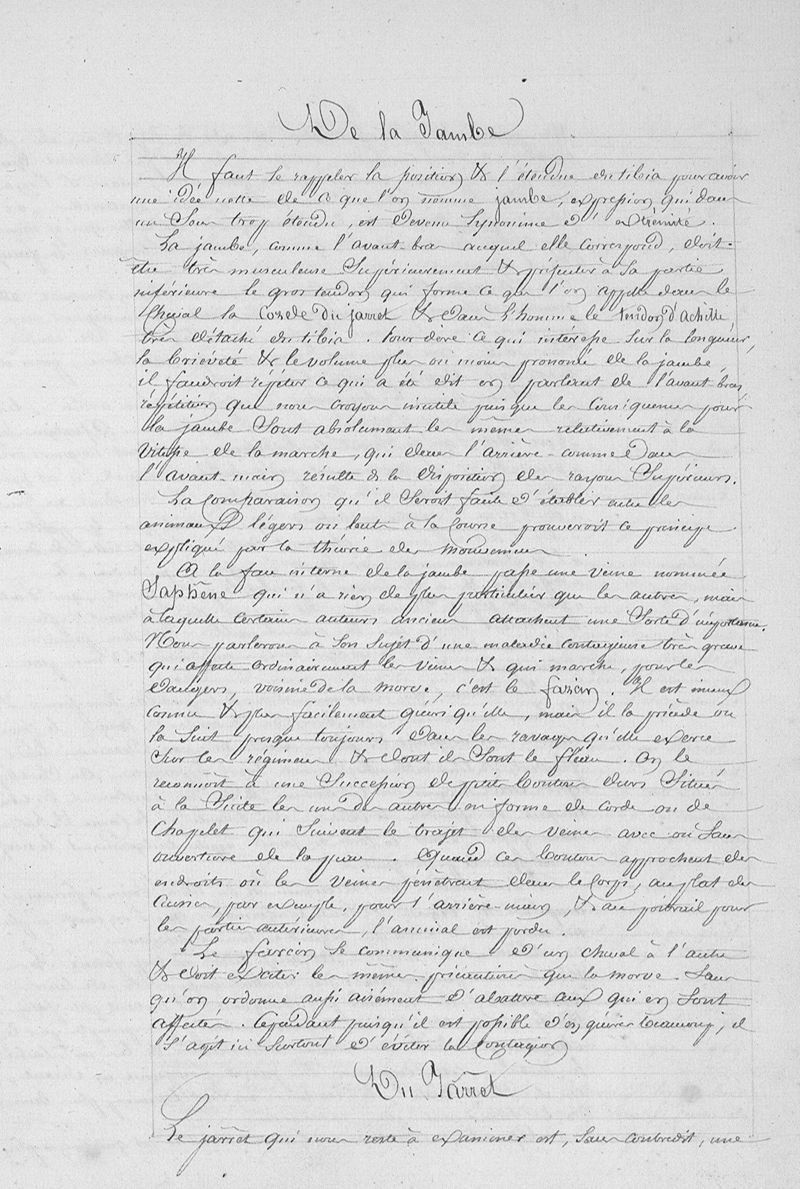 De la Jambe
Il faut se rappeler la position & l'étendue du tibia pour avoir
une idée nette de ce que l'on nomme jambe, expression qui dans
un Sens trop étendu, est devenu Synonime d'extrémité.
La jambe, comme l'avant-bras auquel elle correspond, doit
être très musculeuse Supérieurement & présenter à Sa partie
inférieure le gros tendon qui forme ce que l'on appelle dans le
Cheval la Corde du jarret & dans l'homme le tendon d'achille
très détaché du tibia. Pour dire ce qui intéresse Sur la longueur,
la brièveté & le volume plus ou moins prononcé de la jambe,
il faudroit répéter ce qui a été dit en parlant de l'avant-bras,
répétition que nous croyons inutile puisque les Conséquences pour
la jambe Sont absolument les mêmes relativement à la
Vitesse de la marche, qui dans l'arrière-comme dans
l'avant-main résulte de la disposition des rayons Supérieurs.
La Comparaison qu'il Seroit facile d'établir entre les
animaux légers ou lents à la Course prouveroit ce principe
expliqué par la théorie des mouvemens.
A la face interne de la jambe passe une veine nommée
Saphène qui n'a rien de plus particulier que les autres, mais
à laquelle certains auteurs anciens attachent une Sorte d'importance.
Nous parlerons à Son Sujet d'une maladie contagieuse très grave
qui affecte ordinairement les veines & qui marche, pour les
dangers, voisine de la morve, c'est le farcin. Il est mieux
connu & plus facilement guéri qu'elle, mais il la précède ou
la Suit presque toujours dans les ravages qu'elle exerce
Sur les régimens & dont ils Sont le fléau. On le
reconnoit à une Succession de petits boutons durs Situés
à la Suite les uns des autres en forme de corde ou de
Chapelet qui Suivent le trajet des veines avec ou Sans
ouverture de la peau. Quand ces boutons approchent des
endroits où les veines pénètrent dans le Corps, au plat des
Cuisses, par exemple, pour l'arrière-main, & au poitrail pour
les parties antérieures, l'animal est perdu.
Le farcin Se communique d'un cheval à l'autre
& doit exciter les mêmes précautions que la morve. Sans
qu'on ordonne aussi aisément d'abattre ceux qui en Sont
affectés. Cependant puisqu'il est possible d'en guérir beaucoup, il
S'agit ici Surtout d'éviter la Contagion
Du Jarret
Le jarret qui nous reste à examiner est, Sans contredit, une